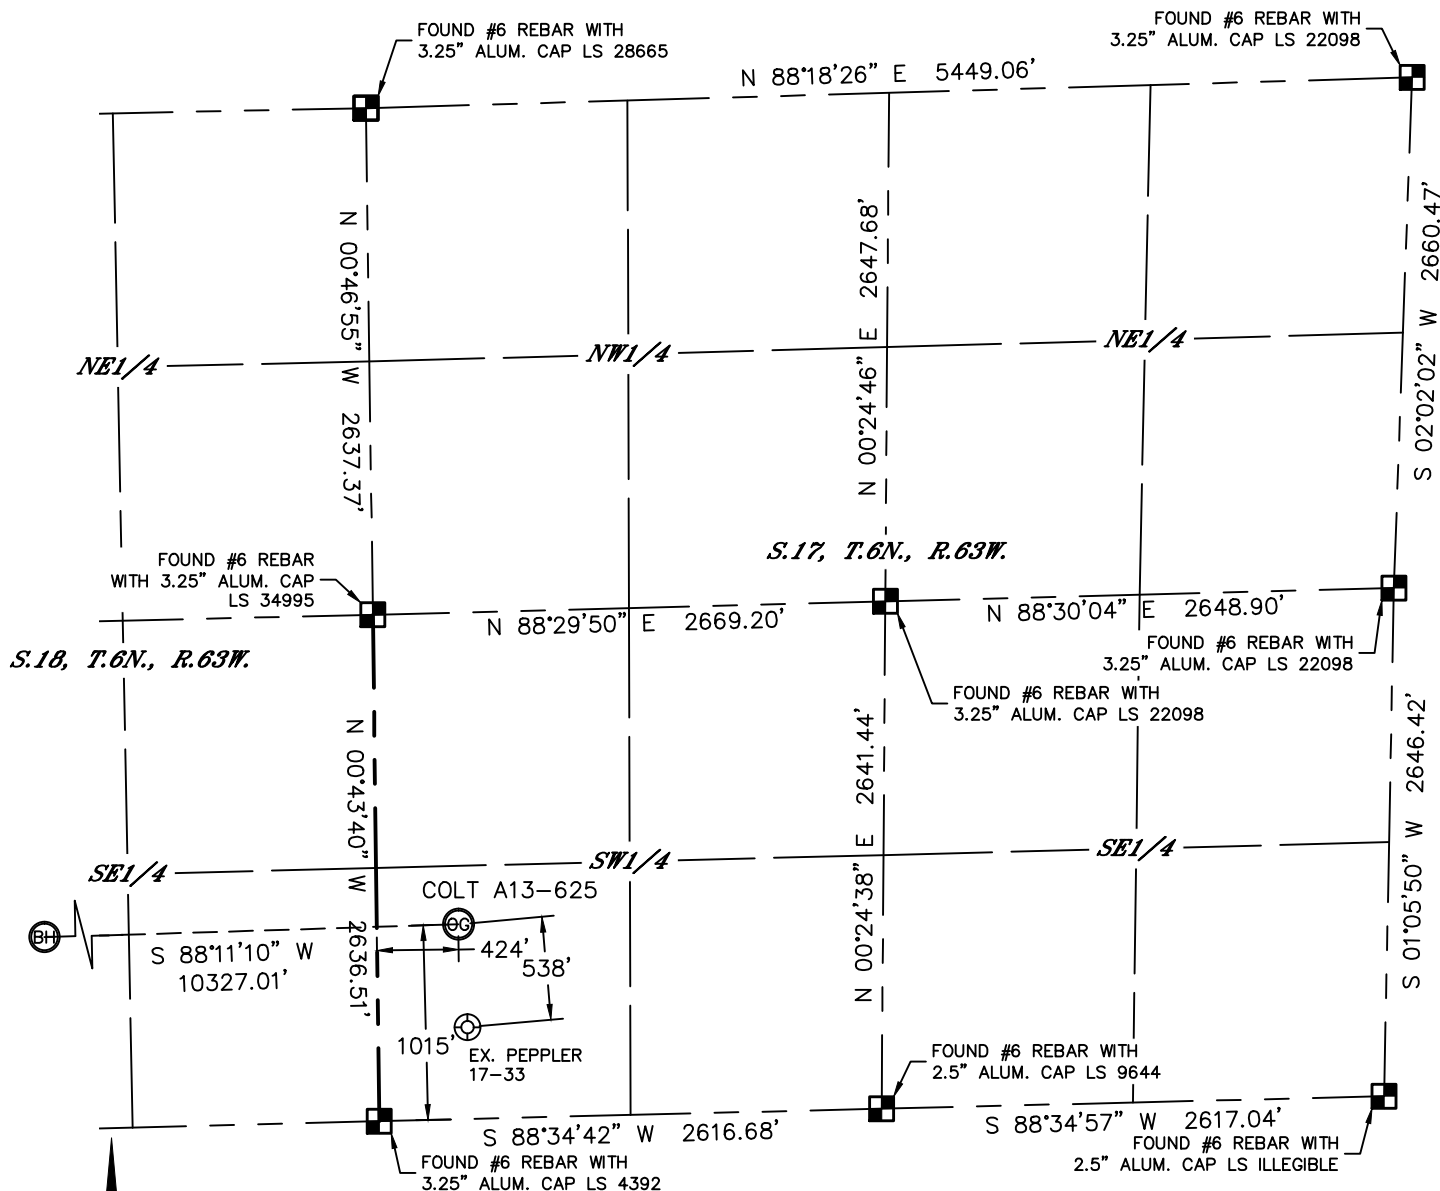 FOUND #6 REBAR WITH
3.25" ALUM. CAP LS 28665
FOUND #6 REBAR WITH
3.25" ALUM. CAP LS 22098
N 88°18'26" E 5449.06'
N 00°46'55" W 2637.37'
N 00°24'46" E 2647.68'
S 02°02'02" W 2660.47'
NE1/4
NW1/4
NE1/4
S.17, T.6N., R.63W.
FOUND #6 REBAR
WITH 3.25" ALUM. CAP
LS 34995
N 88°29'50" E 2669.20'
N 88°30'04" E 2648.90'
S.18, T.6N., R.63W.
FOUND #6 REBAR WITH
3.25" ALUM. CAP LS 22098
FOUND #6 REBAR WITH
3.25" ALUM. CAP LS 22098
N 00°43'40" W 2636.51'
N 00°24'38" E 2641.44'
S 01°05'50" W 2646.42'
SE1/4
SW1/4
SE1/4
COLT A13-625
OG
BH
S 88°11'10" W
10327.01'
424'
538'
1015'
EX. PEPPLER
17-33
FOUND #6 REBAR WITH
2.5" ALUM. CAP LS 9644
S 88°34'42" W 2616.68'
S 88°34'57" W 2617.04'
FOUND #6 REBAR WITH
2.5" ALUM. CAP LS ILLEGIBLE
FOUND #6 REBAR WITH
3.25" ALUM. CAP LS 4392